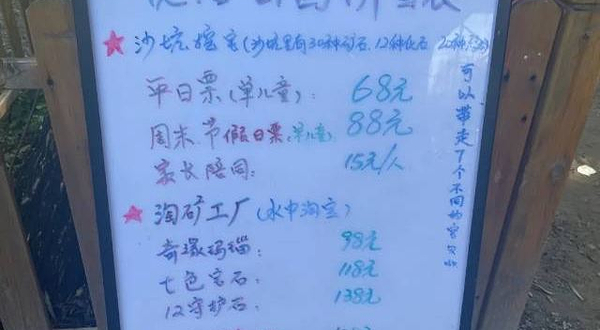 沙坑挖宝(沙坑里有30种矿石, 12种化石
平日票(单儿童): 68元
周末 节假日票(单儿童) 88元
家长陪同: 15元/人
淘矿工厂(水中淘宝)
奇缘玛瑙: 98元
七色宝石: 118元
12守护石: 138元
可以带走7个不同的宝贝